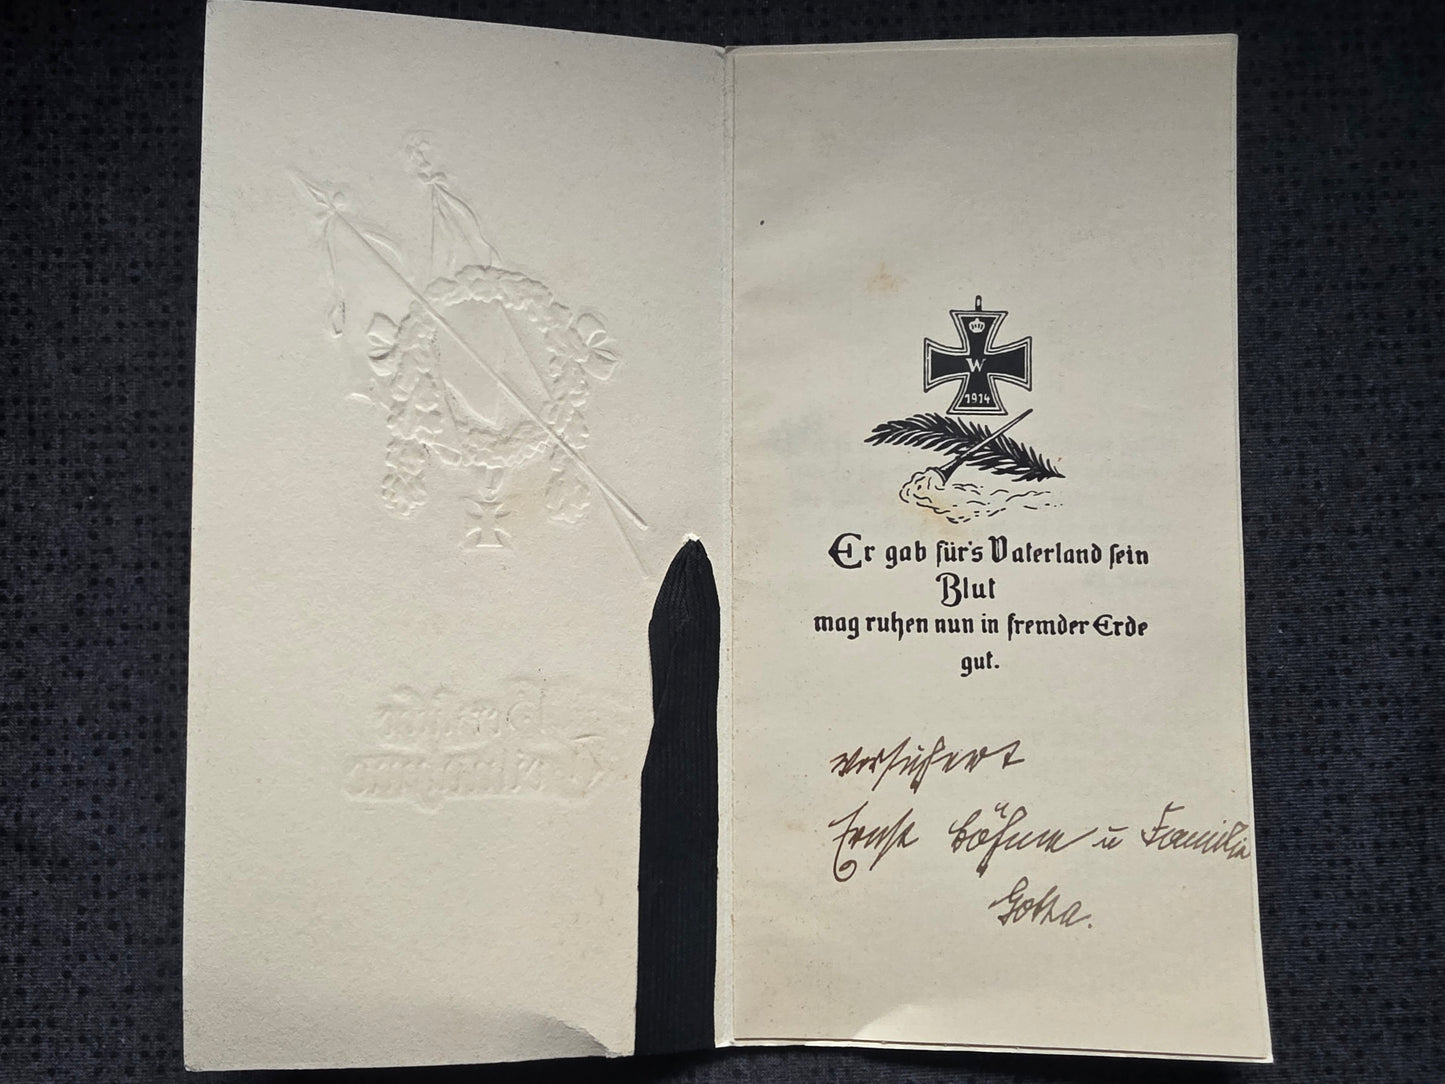 W
1914
Er gab für's Vaterland sein
Blut
mag ruhen nun in fremder Erde
gut.
versichert
Ernst Böhme u Familie
Gotha.